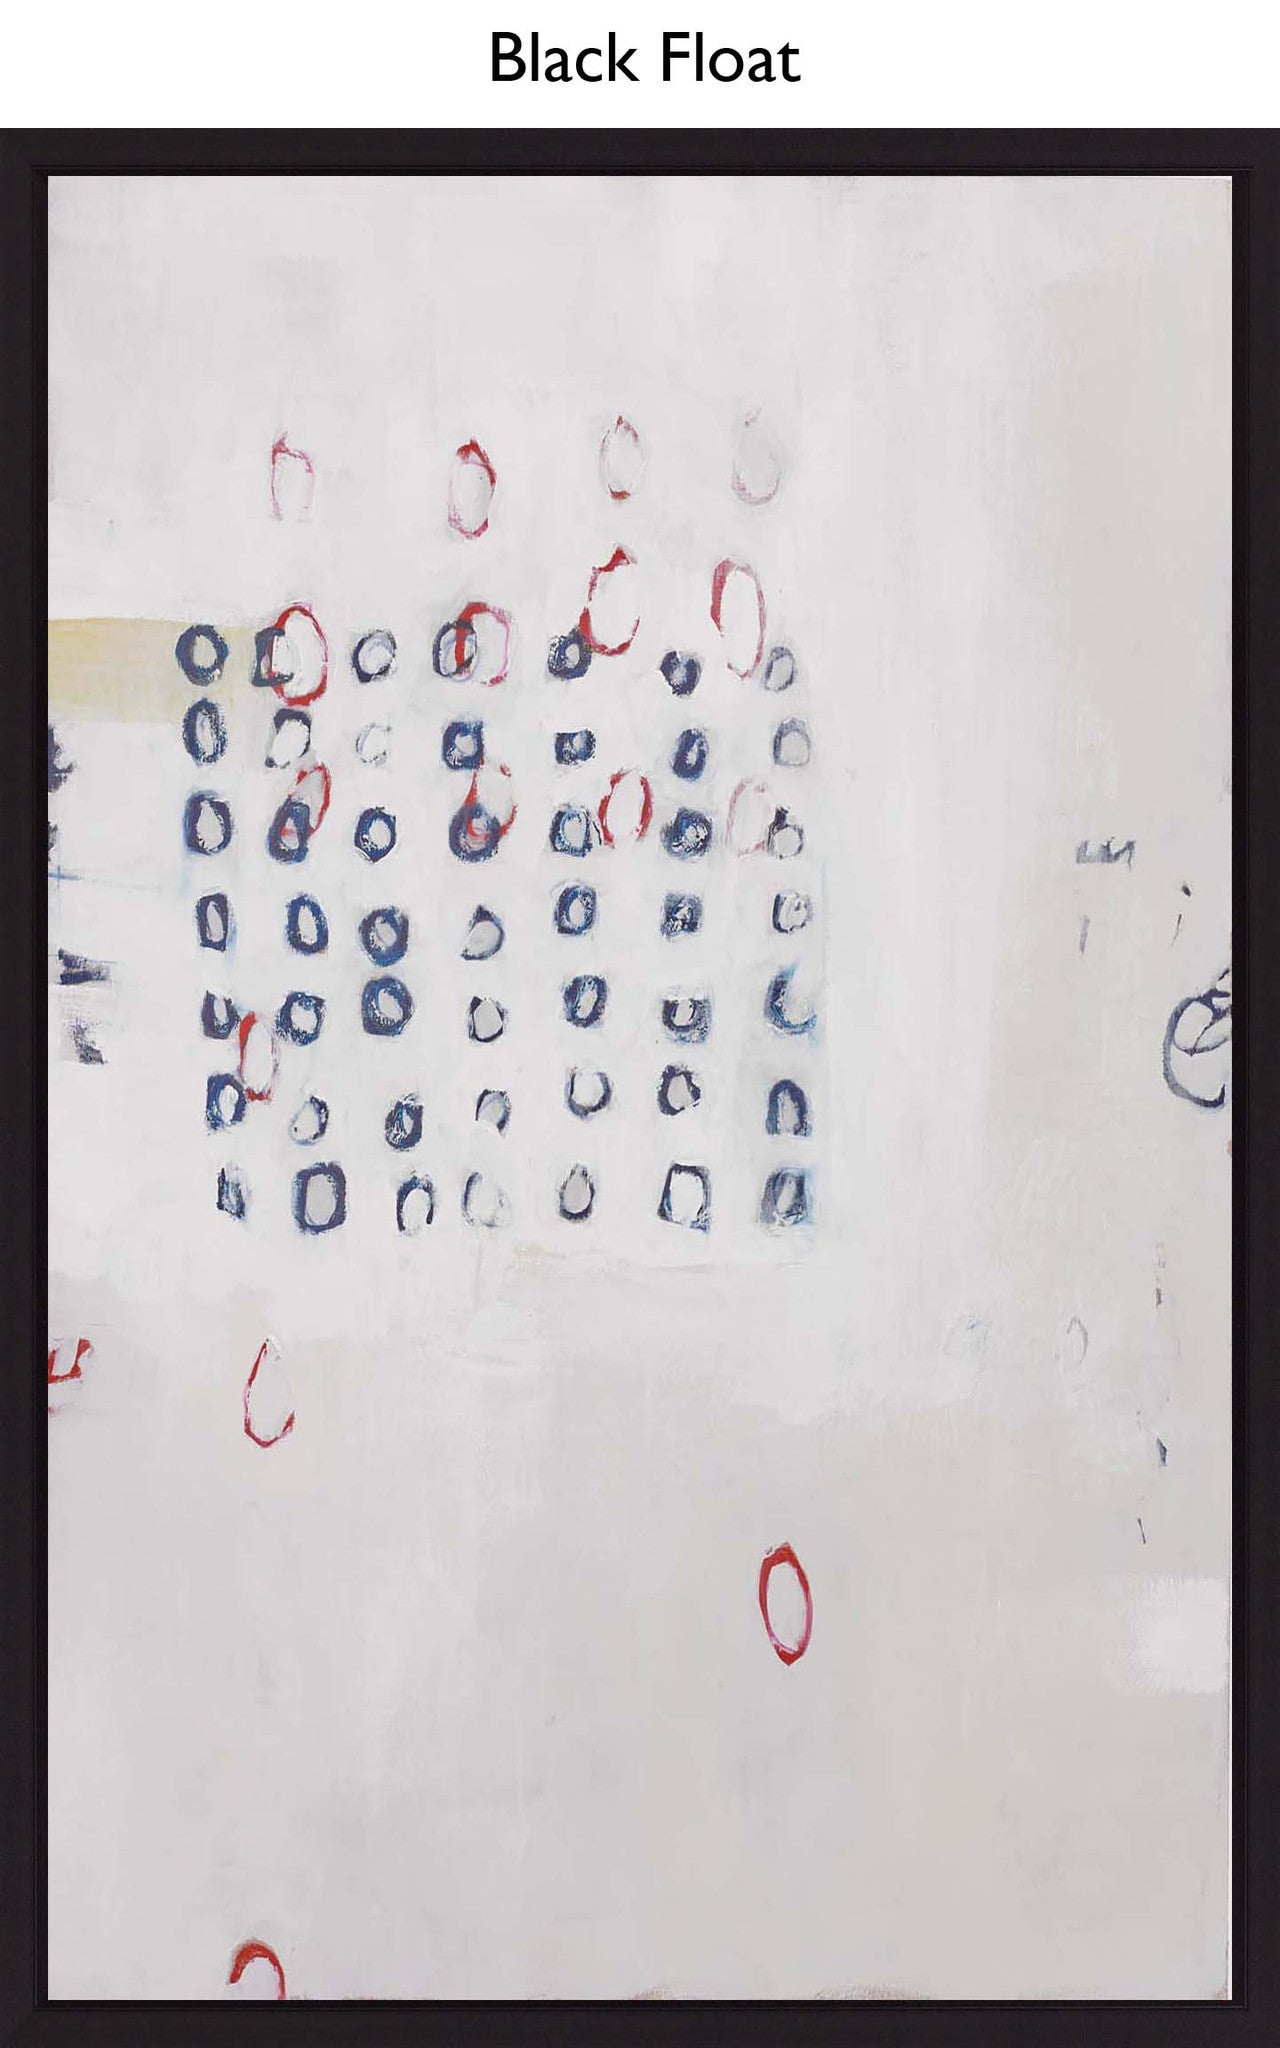 Black Float